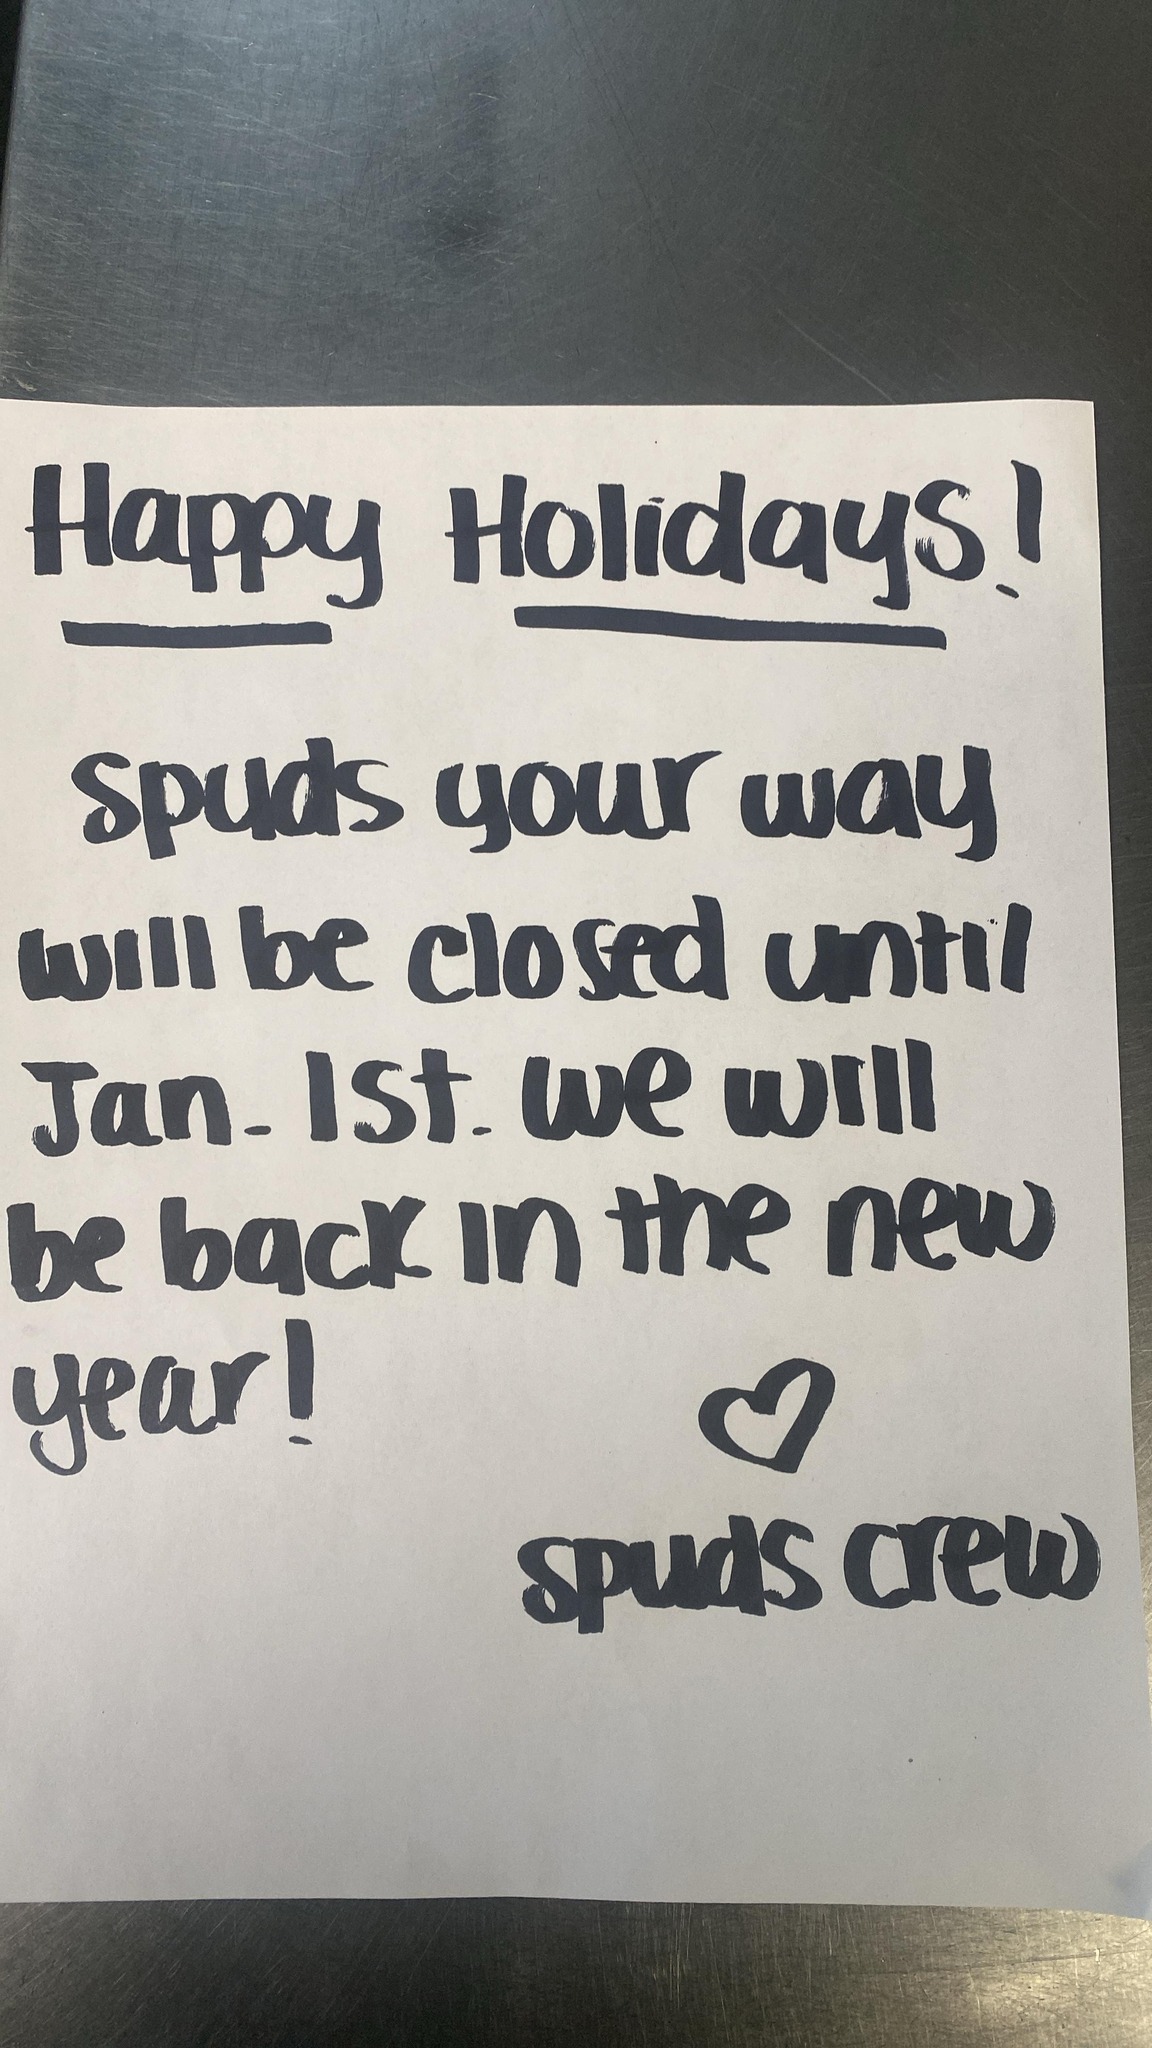 Happy Holidays!
Spuds your way
will be closed until
Jan. 1st. we will
be back in the new
year!
♡
spuds crew